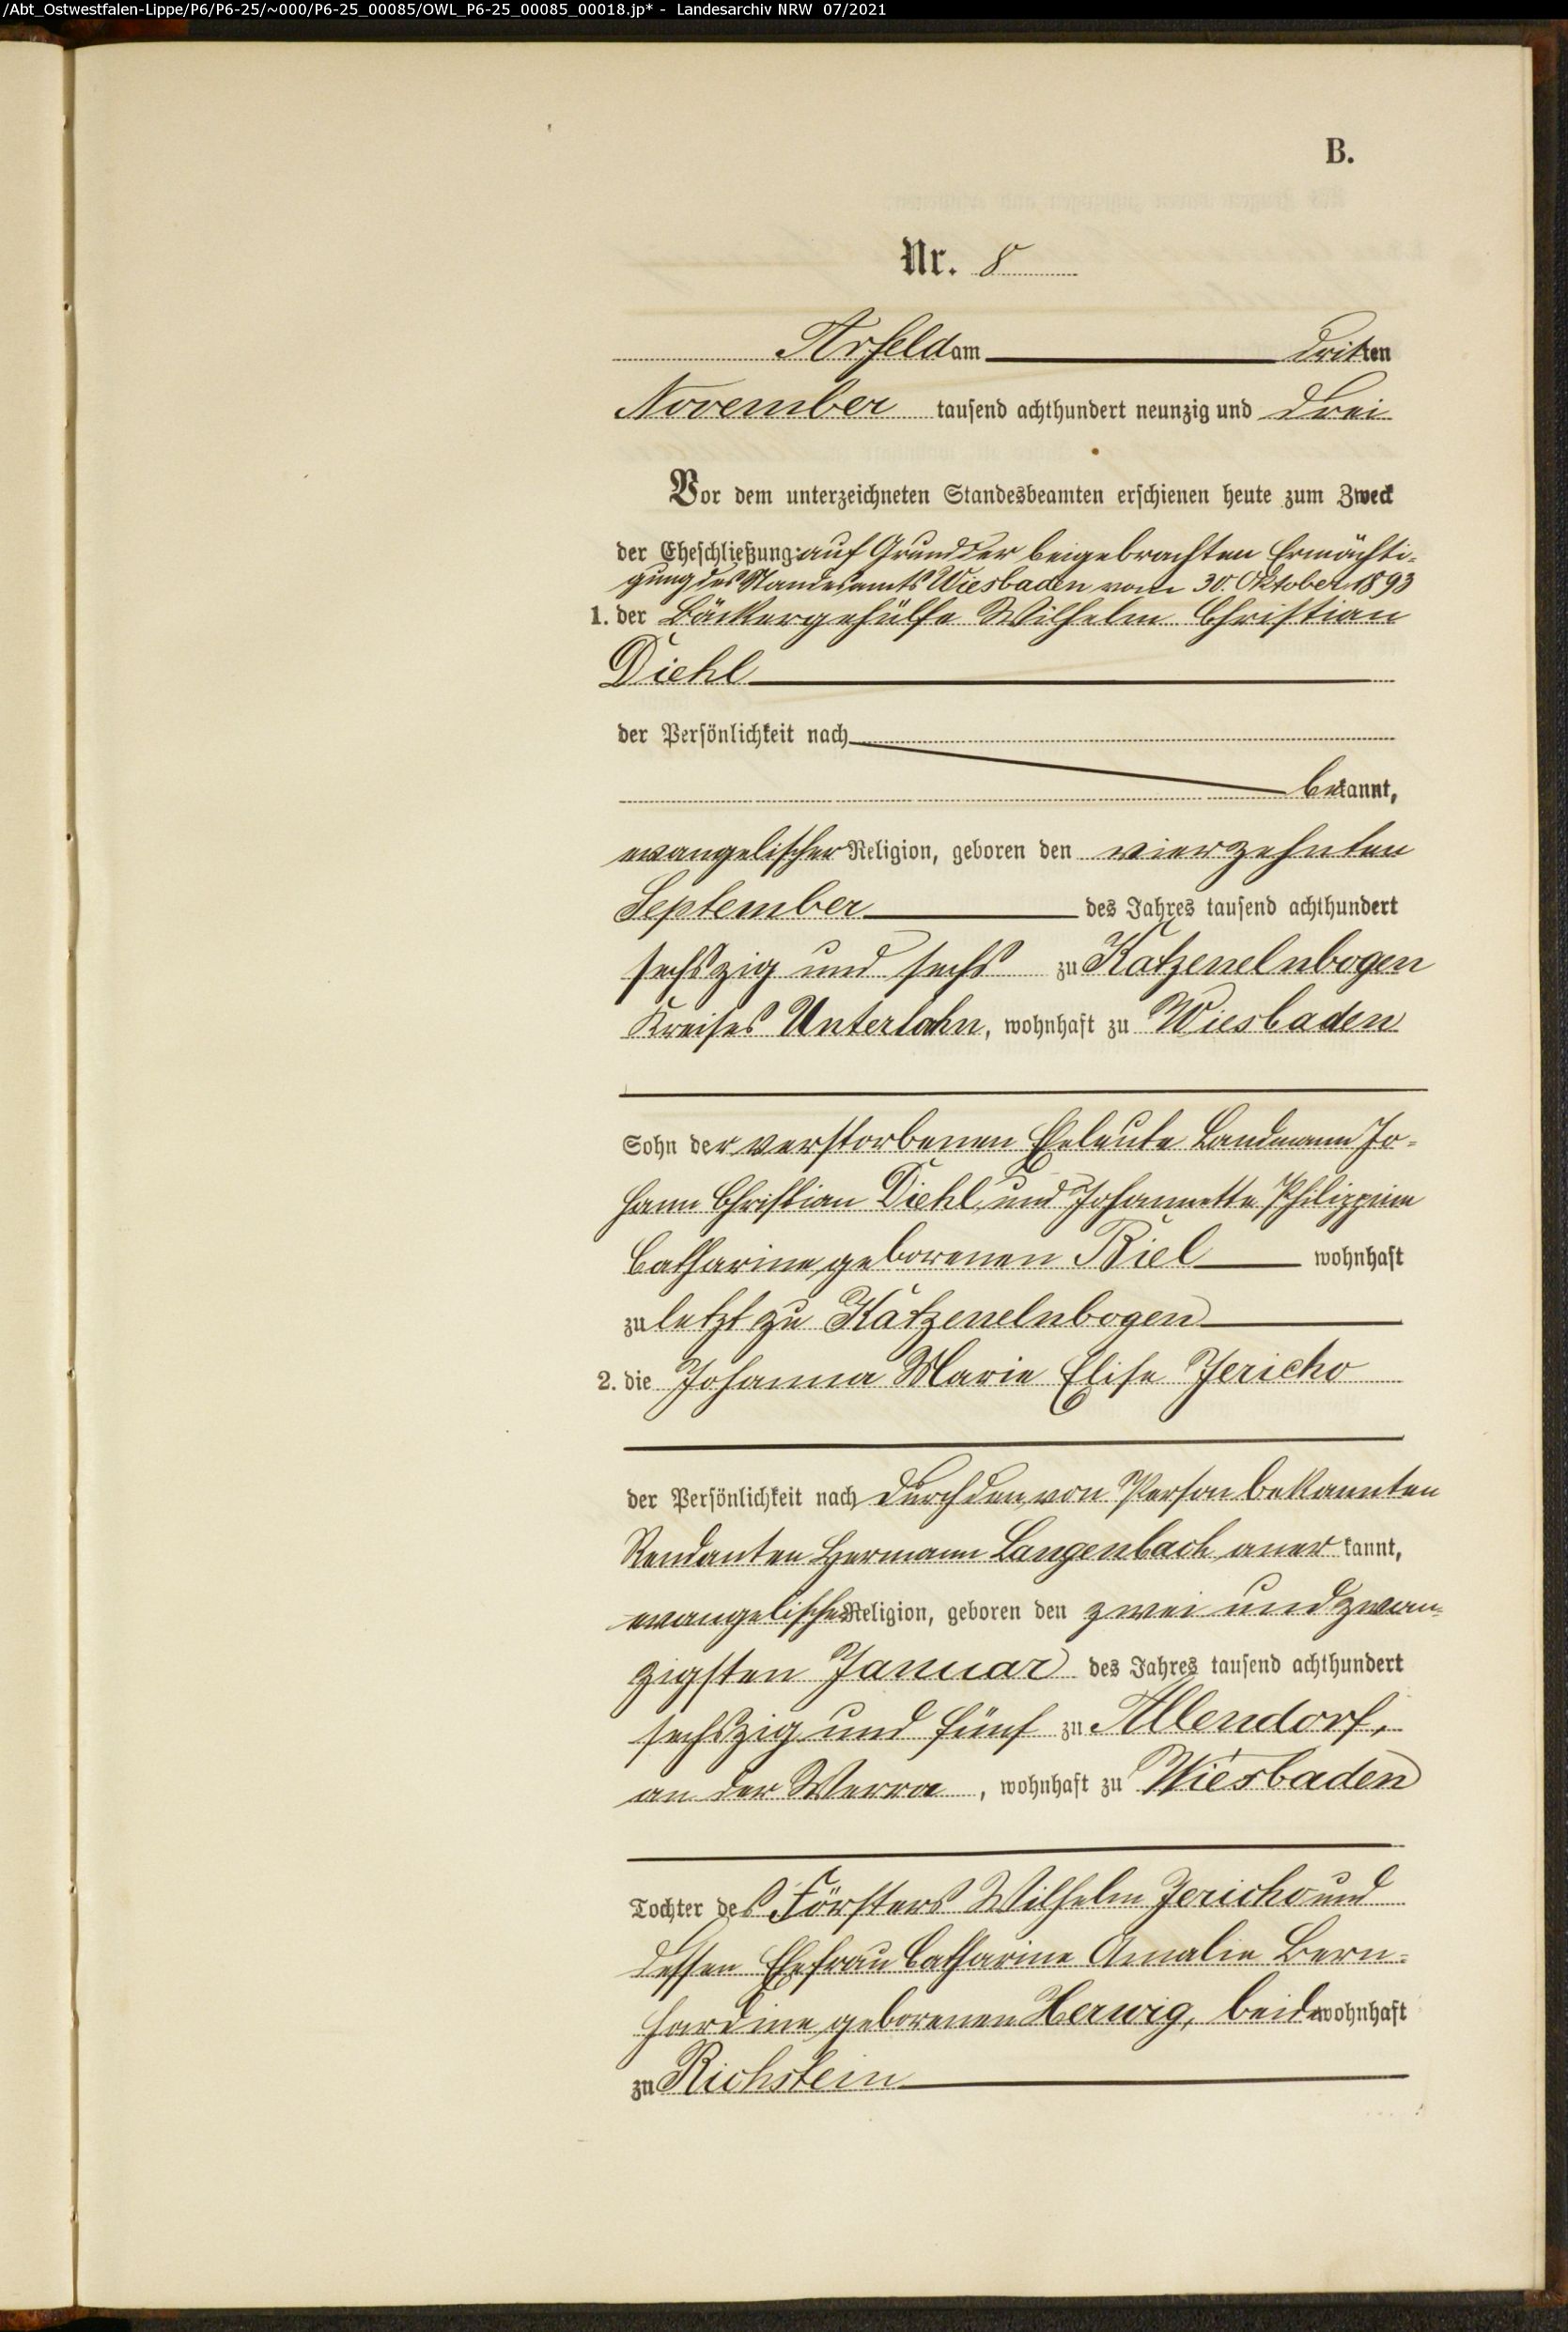 /Abt_Ostwestfalen-Lippe/P6/P6-25/~000/P6-25_00085/OWL_P6-25_00085_00018.jp* - Landesarchiv NRW 07/2021
B.
Nr. 8
Arfeld am dritten
November tausend achthundert neunzig und drei
Vor dem unterzeichneten Standesbeamten erschienen heute zum Zweck
der Eheschließung: auf Grund der beigebrachten Ermächti-
gung des Standesamts Wiesbaden vom 30. Oktober 1893
1. der Bäckergehülfe Wilhelm Christian
Diehl
der Persönlichkeit nach
bekannt,
evangelischer Religion, geboren den vierzehnten
September des Jahres tausend achthundert
sechszig und sechs zu Katzenelnbogen
Kreises Unterlahn, wohnhaft zu Wiesbaden
Sohn der verstorbenen Eheleute Landmann Jo-
hann Christian Diehl und Johannette Philippine
Catharine geborenen Biel wohnhaft
zuletzt zu Katzenelnbogen
2. die Johanna Marie Elise Jericho
der Persönlichkeit nach durch den von Person bekannten
Rendanten Hermann Langenbach anerkannt,
evangelischer Religion, geboren den zwei und zwan-
zigsten Januar des Jahres tausend achthundert
sechszig und fünf zu Allendorf,
an der Werra, wohnhaft zu Wiesbaden
Tochter des Försters Wilhelm Jericho und
dessen Ehefrau Catharine Amalie Bern-
hardine geborenen Herwig, beide wohnhaft
zu Richstein